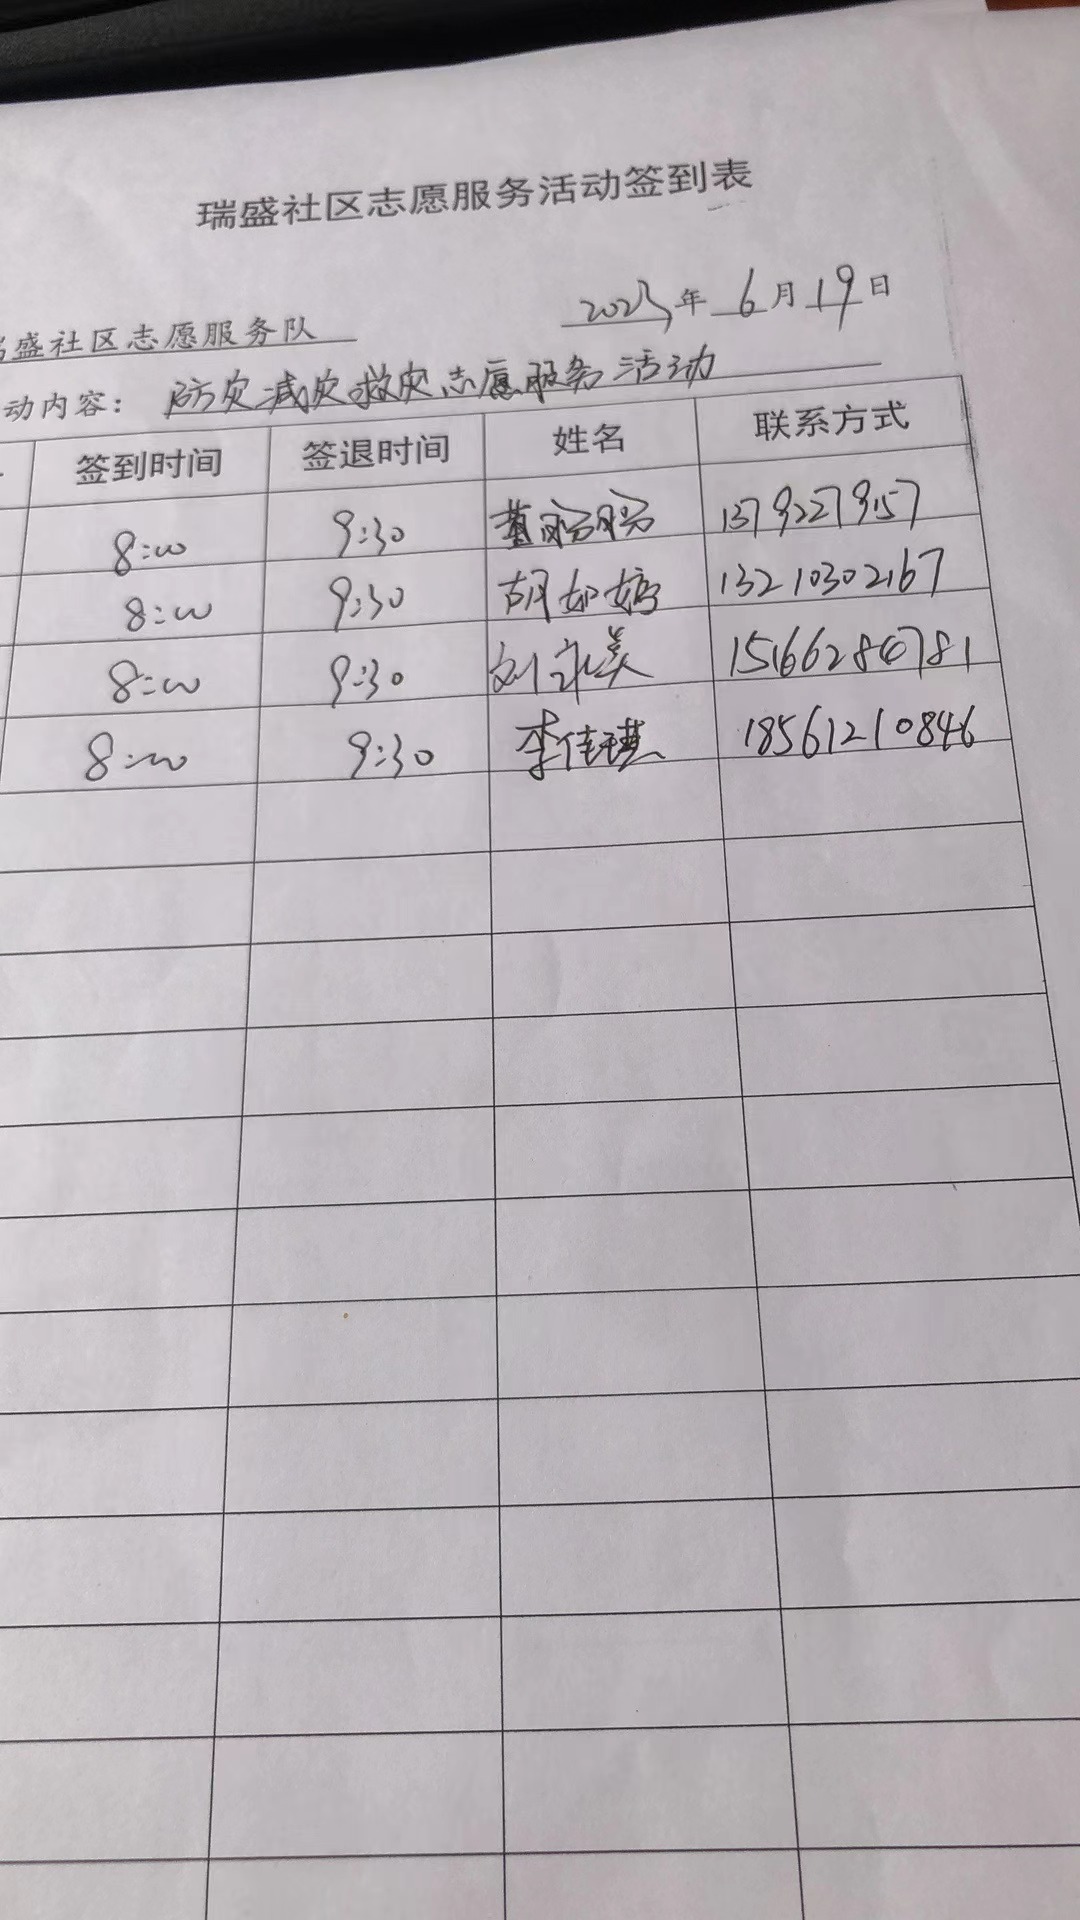 瑞盛社区志愿服务活动签到表
2023年6月19日
盛社区志愿服务队
动内容：防灾减灾救灾志愿服务活动
签到时间 签退时间 姓名 联系方式
8:00 9:30 董 1379227957
8:00 9:30 胡如婷 13210302167
8:00 9:30 刘永美 15166284781
8:00 9:30 李佳琪 18561210846